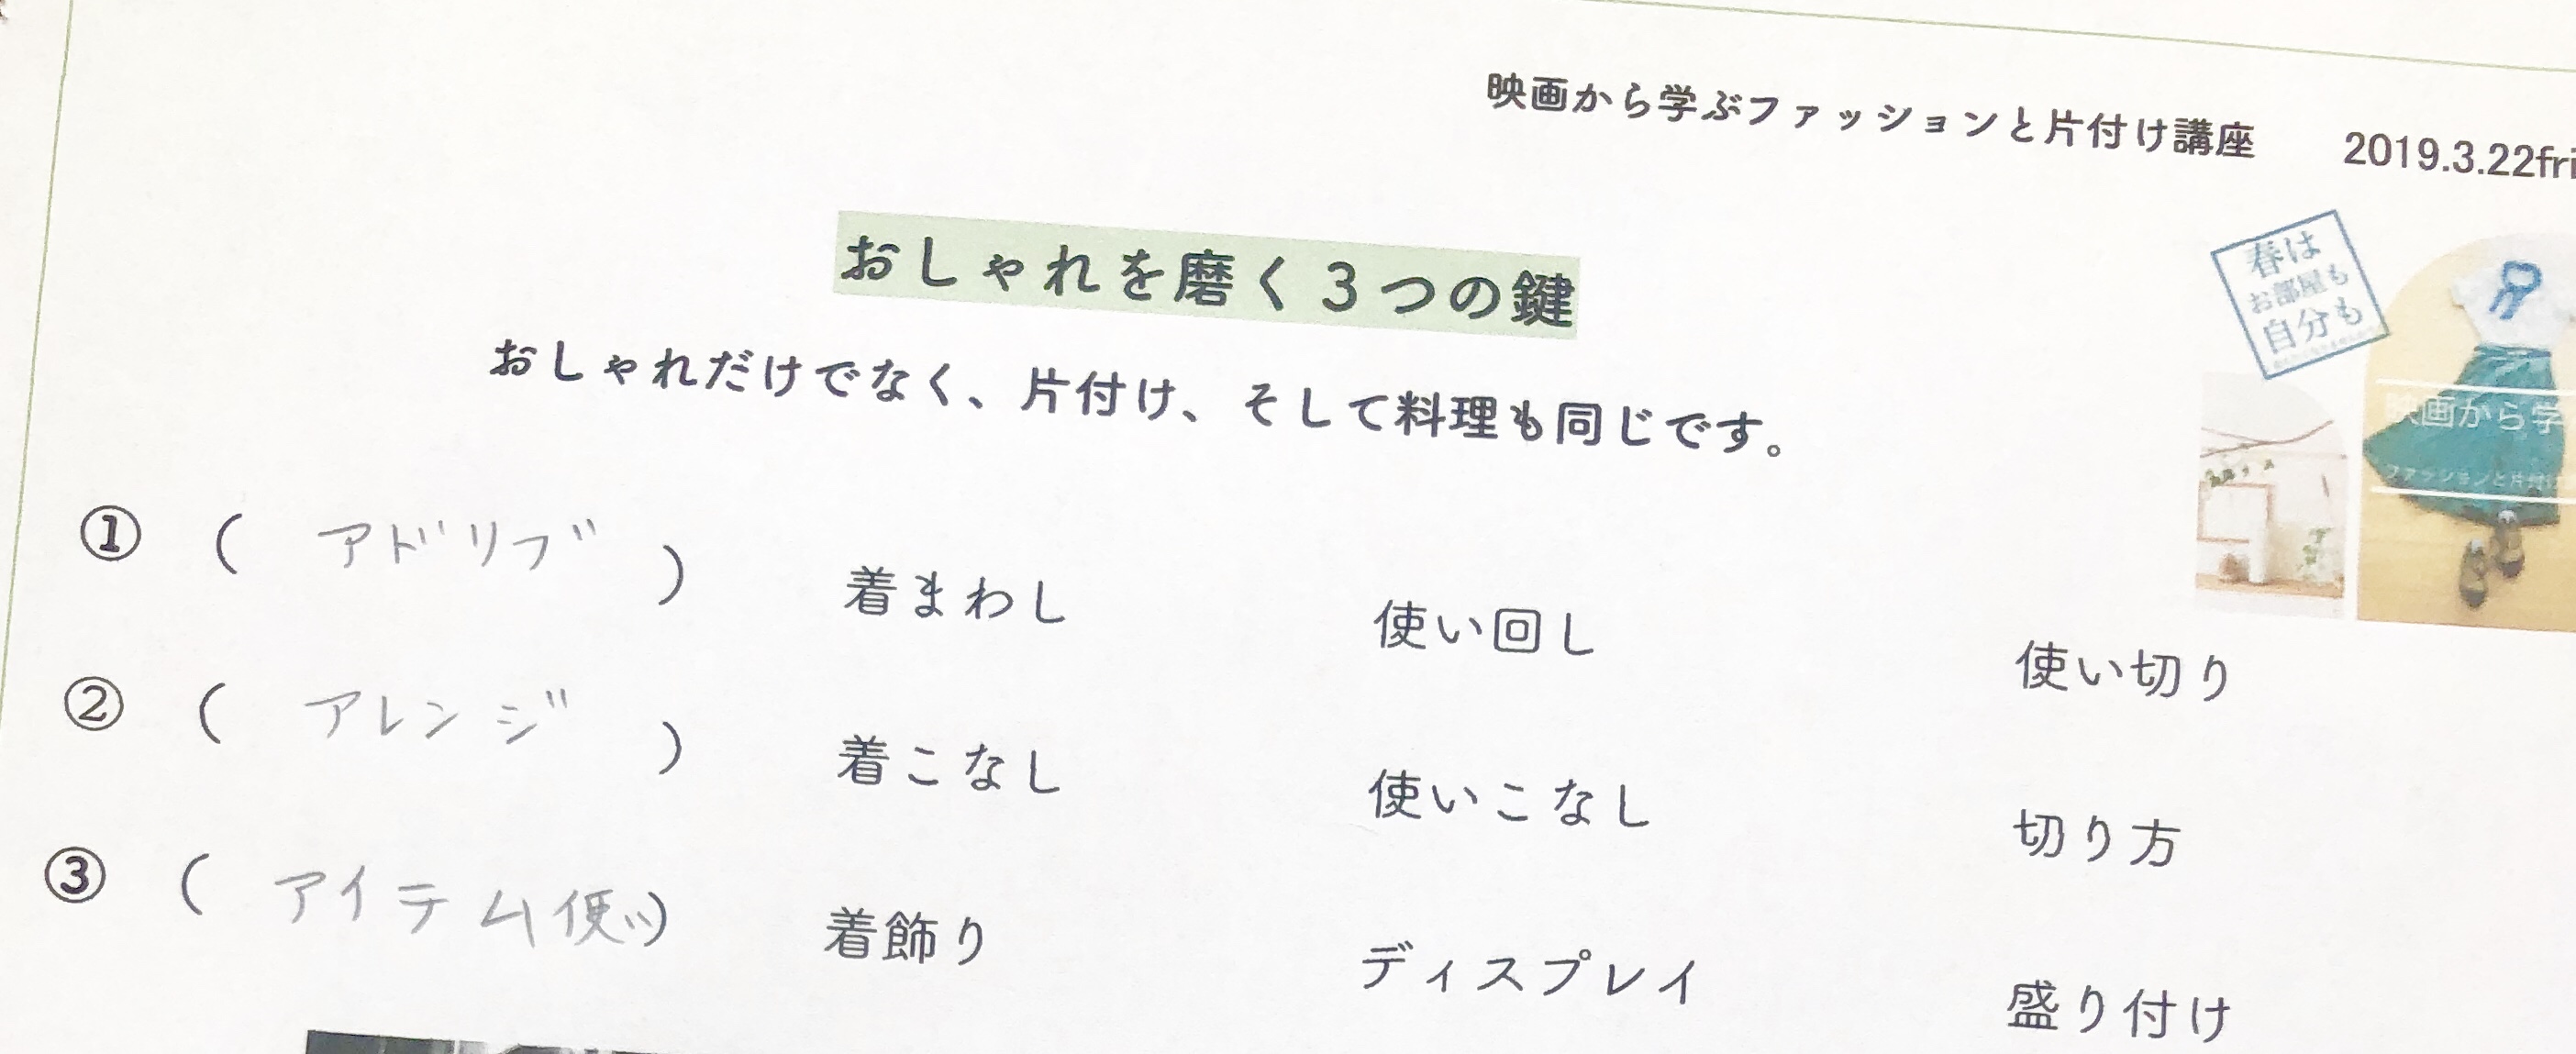 映画から学ぶファッションと片付け講座 2019.3.22fri
おしゃれを磨く３つの鍵
おしゃれだけでなく、片付け、そして料理も同じです。
春は
お部屋も
自分も
映画から学
ファッションと片付け
① （ アドリブ ） 着まわし 使い回し 使い切り
② （ アレンジ ） 着こなし 使いこなし 切り方
③ （ アイテム使い） 着飾り ディスプレイ 盛り付け